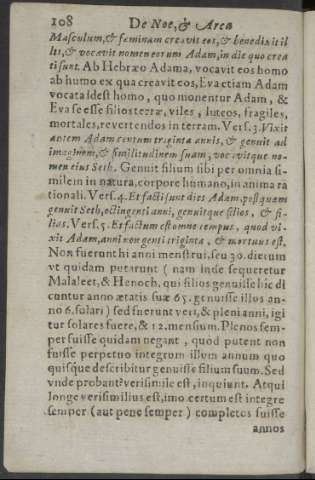 108 De Noe, & Arca
Masculum, & fœminam creavit eos, & benedixit il
lis, & vocavit nomen eorum Adam, in die quo crea
ti sunt. Ab Hebræo Adama, vocavit eos homo
ab humo ex qua creavit eos, Eva etiam Adam
vocata idest homo, quo monentur Adam, &
Eva se esse filios terræ, viles, luteos, fragiles,
mortales, revertendos in terram. Vers. 3. Vixit
autem Adam centum triginta annis, & genuit ad
imaginem, & similitudinem suam, vocavitque no-
men eius Seth. Genuit filium sibi per omnia si-
milem in natura, corpore humano, in anima ra
tionali. Vers. 4. Et facti sunt dies Adam, postquam
genuit Seth, octingenti anni, genuitque filios, & fi-
lias. Vers. 5. Et factum est omne tempus, quod vi-
xit Adam, anni nongenti triginta, & mortuus est.
Non fuerunt hi anni menstrui, seu 30. dierum
vt quidam putarunt (nam inde sequeretur
Malaleet, & Henoch, qui filios genuisse hic di
cuntur anno ætatis suæ 65. genuisse illos an-
no 6. solari) sed fuerunt veri, & pleni anni, igi
tur solares fuere, & 12. mensium. Plenos sem-
per fuisse quidam negant, quod putent non
fuisse perpetuo integrum illum annum quo
quisque describitur genuisse filium suum. Sed
vnde probant? verisimile est, inquiunt. Atqui
longe verisimilius est, imo certum est integre
semper (aut pene semper) completos fuisse
annos